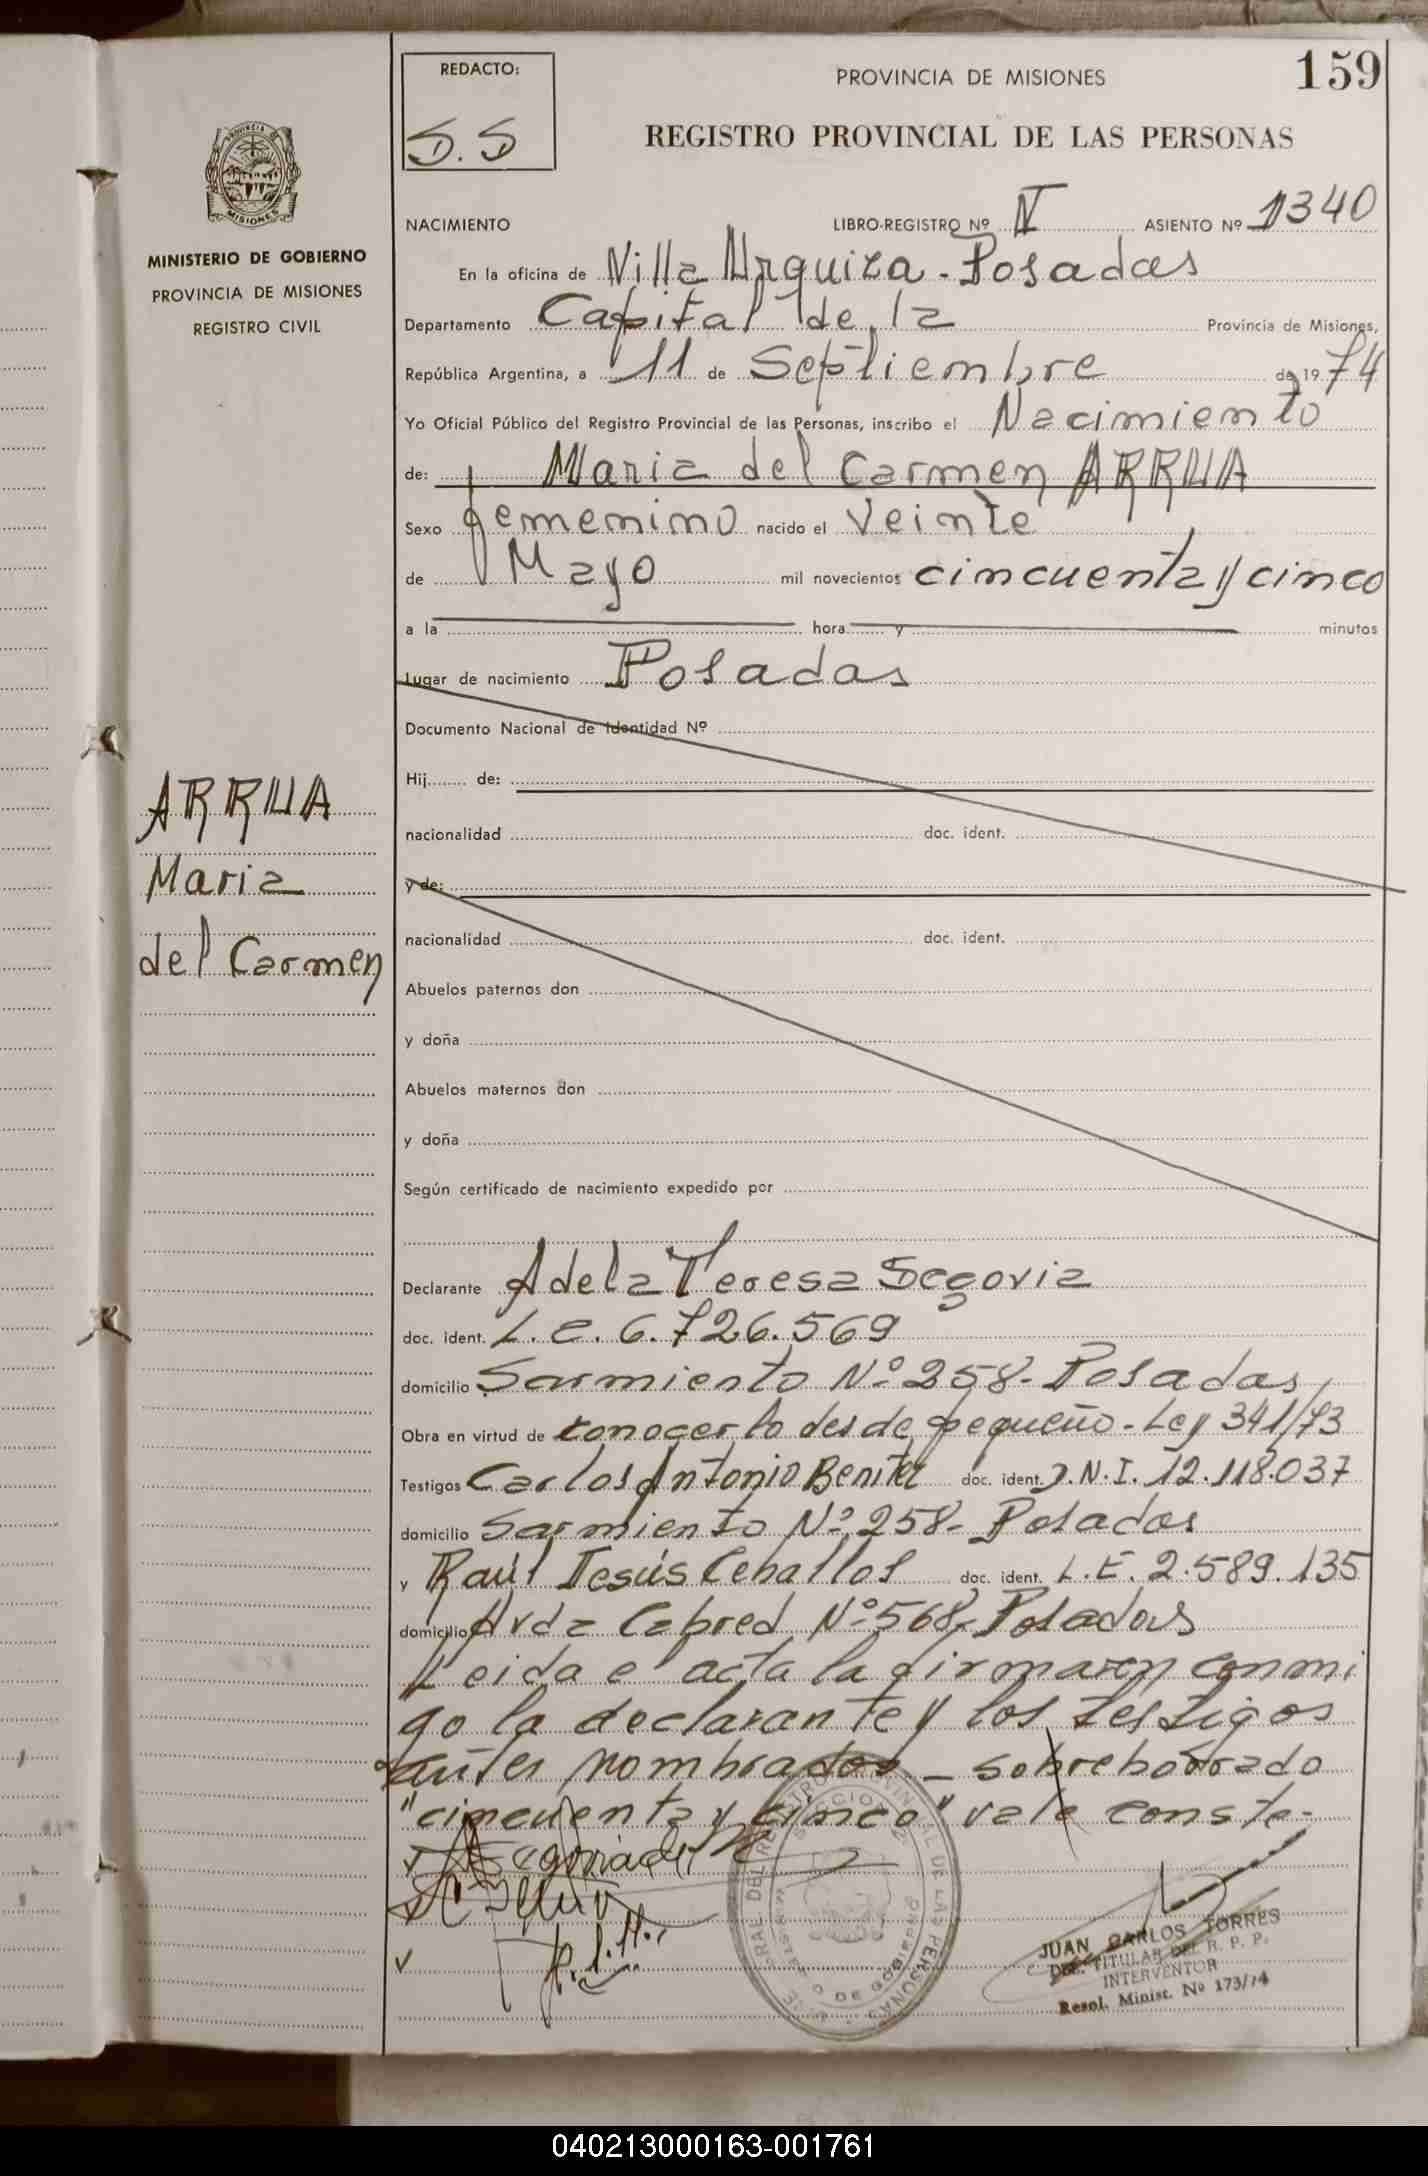 REDACTO:
S.S
PROVINCIA DE MISIONES
159
REGISTRO PROVINCIAL DE LAS PERSONAS
MISIONES
MINISTERIO DE GOBIERNO
PROVINCIA DE MISIONES
REGISTRO CIVIL
NACIMIENTO LIBRO-REGISTRO Nº V ASIENTO Nº 1340
En la oficina de Villa Urquiza - Posadas
Departamento Capital de la Provincia de Misiones,
República Argentina, a 11 de Septiembre de 1974
Yo Oficial Público del Registro Provincial de las Personas, inscribo el Nacimiento
de: Maria del Carmen ARRUA
Sexo femenino nacido el veinte
de Mayo mil novecientos cincuenta y cinco
a la hora y minutos
Lugar de nacimiento Posadas
Documento Nacional de Identidad Nº
Hij de:
nacionalidad doc. ident.
y de:
nacionalidad doc. ident.
Abuelos paternos don
y doña
Abuelos maternos don
y doña
Según certificado de nacimiento expedido por
ARRUA
Maria
del Carmen
Declarante Adela Teresa Segovia
doc. ident. L.C. 6.726.569
domicilio Sarmiento Nº 258 - Posadas
Obra en virtud de conocerlo desde pequeño - Ley 341/73
Testigos Carlos Antonio Benitez doc. ident. D.N.I. 12.118.037
domicilio Sarmiento Nº 258 - Posadas
y Raúl Jesús Ceballos doc. ident. L.E. 2.589.135
domicilio Avda Cabred Nº 568 - Posadas
Leida el acta la firmaren conmi
go la declarante y los testigos
antes nombrados - sobreborrado
"cincuenta y cinco" vale conste -
JUAN CARLOS TORRES
TITULAR DEL R. P. P.
INTERVENTOR
Resol. Minist. Nº 173/74
040213000163-001761